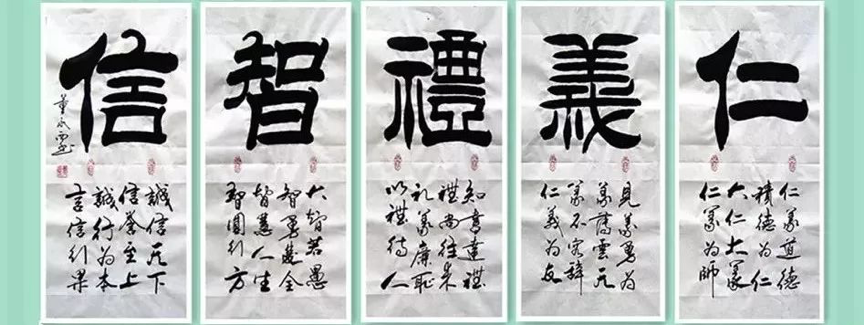 仁
仁義道德
積德為仁
大仁大義
仁義為師
義
見義勇為
義薄雲天
義不容辭
仁義為友
禮
知書達禮
禮尚往来
礼義廉恥
以禮待人
智
大智若愚
智勇雙全
智慧人生
智圓行方
信
誠信天下
信譽至上
誠行為本
言信行果